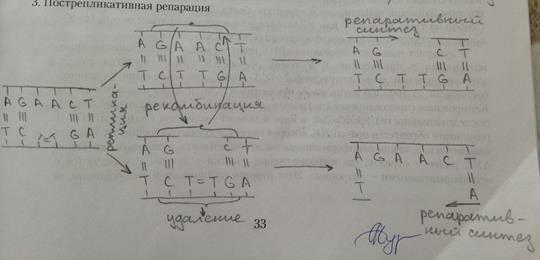 3. Пострепликативная репарация
репаративный
синтез
A G A A C T
T C T T G A
A G C T
T C T T G A
A G A A C T
T C T=T G A
реплика-
ция
рекомбинация
A G C T
T C T=T G A
удаление
A G A A C T
T A
репаратив-
ный синтез
33